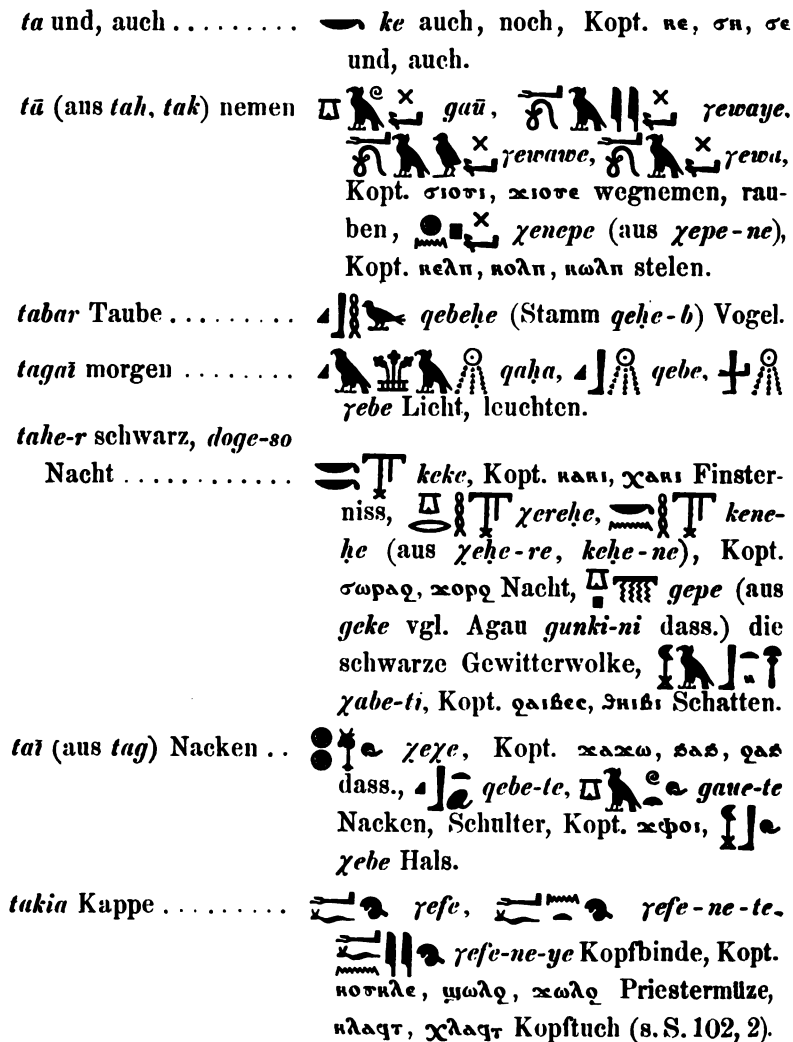 ta und, auch . . . . . . . . . 𓎡 ke auch, noch, Kopt. ⲕⲉ, ϭⲏ, ϭⲉ
und, auch.
tū (aus tah, tak) nemen gaū, γewaye,
γewawe, γewa,
Kopt. ϭⲓⲟⲩⲓ, ϫⲓⲟⲩⲉ wegnemen, rau-
ben, χenepe (aus χepe-ne),
Kopt. ⲕⲉⲗⲡ, ⲕⲟⲗⲡ, ⲕⲱⲗⲡ stelen.
tabar Taube . . . . . . . . . qebeḥe (Stamm qeḥe-b) Vogel.
tagaī morgen . . . . . . . . . qaḥa, qebe,
γebe Licht, leuchten.
tahe-r schwarz, doge-so
Nacht . . . . . . . . . . . . keke, Kopt. ⲕⲁⲕⲓ, ⲭⲁⲕⲓ Finster-
niss, χereḥe, kene-
ḥe (aus χeḥe-re, keḥe-ne), Kopt.
ϭⲱⲣⲁϩ, ϫⲟⲣϩ Nacht, gepe (aus
geke vgl. Agau gunki-ni dass.) die
schwarze Gewitterwolke,
χabe-ti, Kopt. ϩⲁⲓⲃⲉⲥ, ⲑⲏⲓⲃⲓ Schatten.
taī (aus tag) Nacken . . χeχe, Kopt. ϫⲁϫⲱ, ϧⲁϧ, ϩⲁϧ
dass., qebe-te, gaue-te
Nacken, Schulter, Kopt. ϫⲫⲟⲓ,
χebe Hals.
takia Kappe . . . . . . . . . γefe, γefe-ne-te,
γefe-ne-ye Kopfbinde, Kopt.
ⲕⲟⲩⲕⲗⲉ, ϣⲱⲗϩ, ϫⲱⲗϩ Priestermüze,
ⲕⲗⲁϥⲧ, ⲭⲗⲁϥⲧ Kopftuch (s. S. 102, 2).